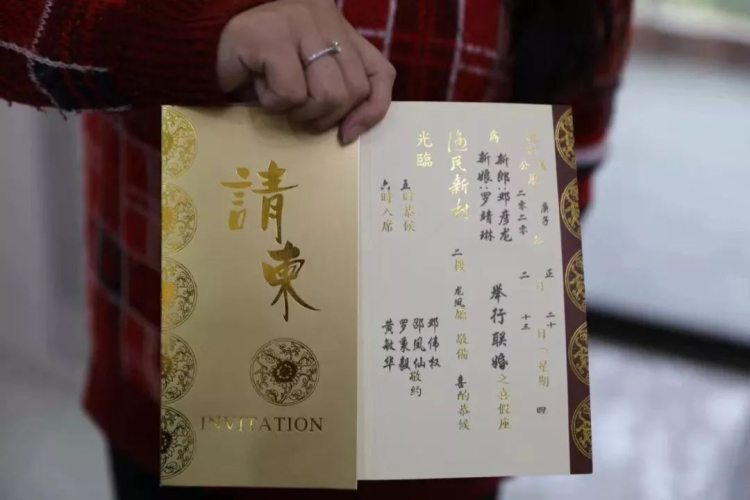 請柬
INVITATION
庚子 正月 二十 日(星期 四
公 二零二零 二 十三
為
新郎:邓彦龙
新娘:罗靖琳
举行联婚之喜假座
渔民新村 二楼 龙凤 敬備 喜酌恭候
光臨
五時恭候
六時入席
邓伟权
邵凤仙
罗秉毅
黄敏华
敬約